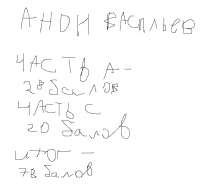 АНДИ ВАСИЛЬЕВ
ЧАСТЬ А -
28 балов
ЧАСТЬ С
20 балов
итог -
78 балов